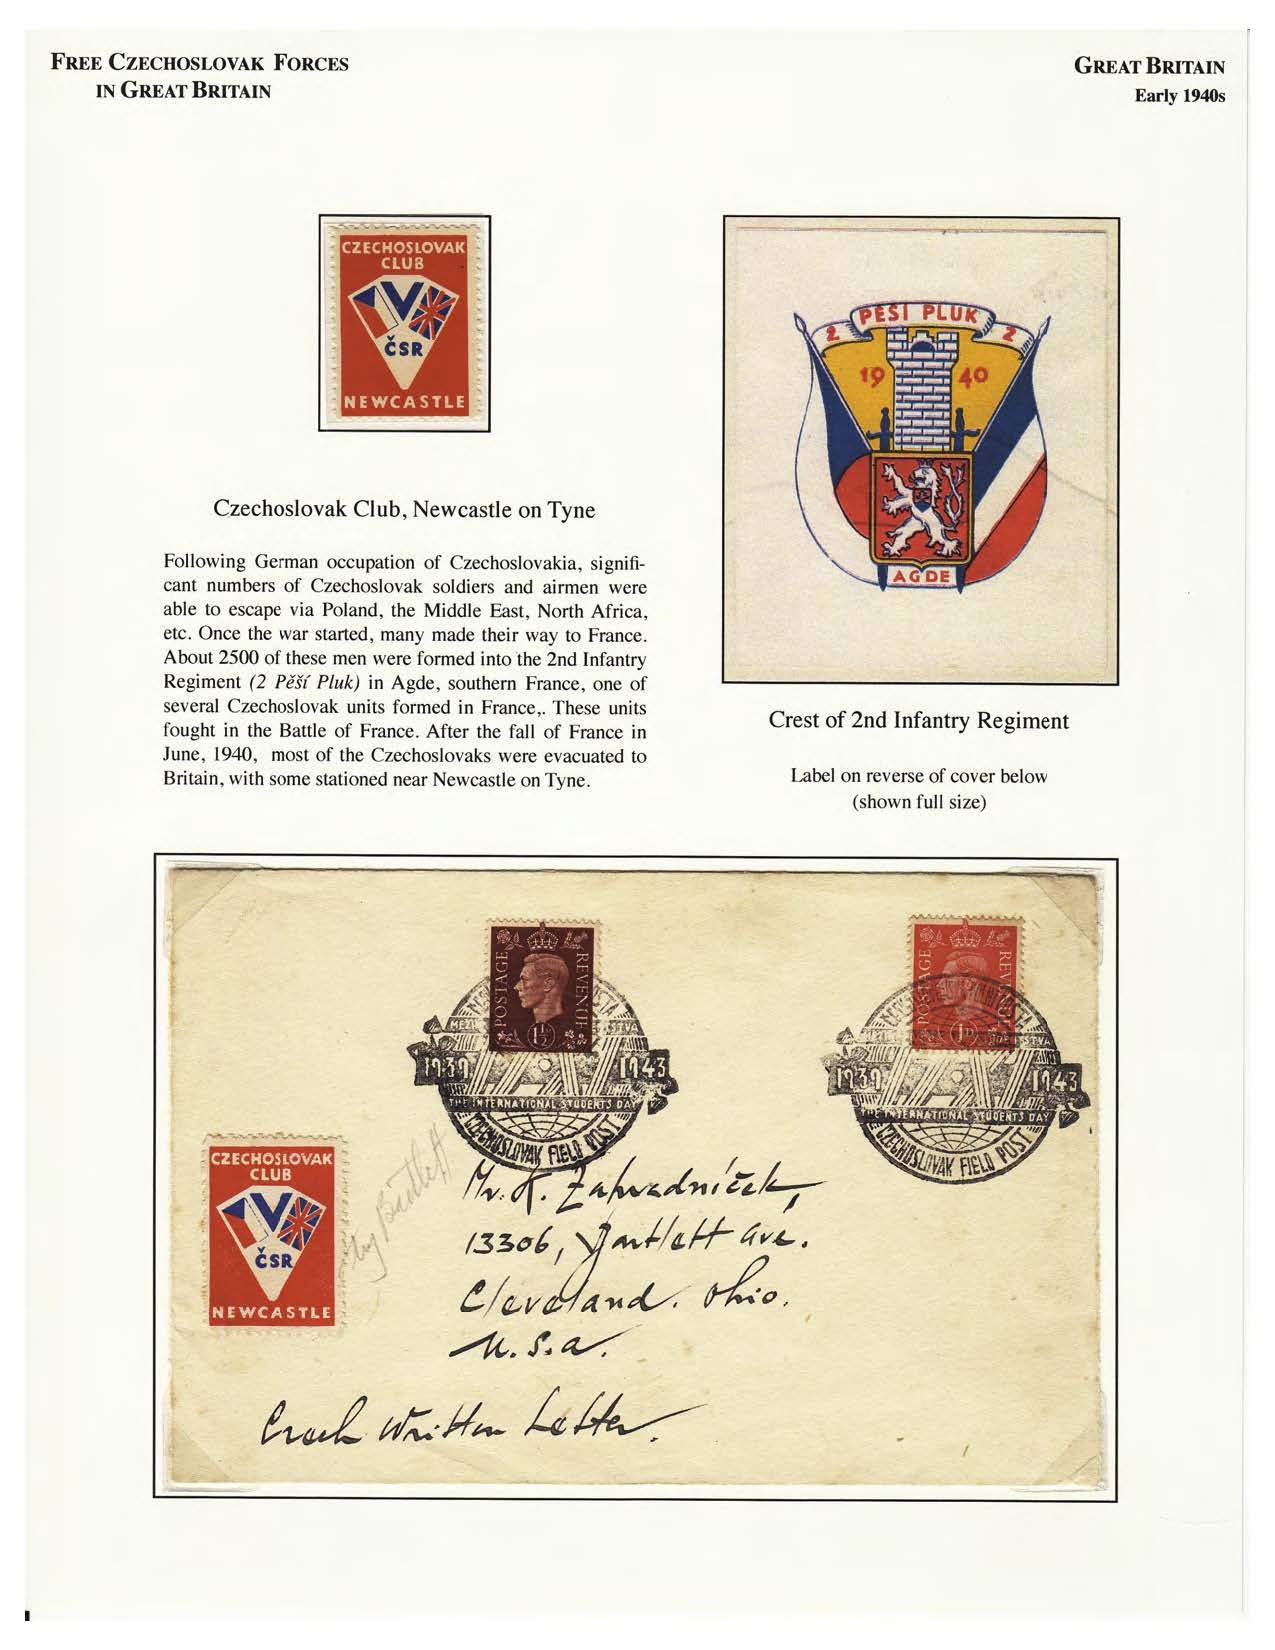 FREE CZECHOSLOVAK FORCES
IN GREAT BRITAIN
GREAT BRITAIN
Early 1940s
CZECHOSLOVAK
CLUB
ČSR
NEWCASTLE
PĚŠÍ PLUK
2 2
19 40
AGDE
Czechoslovak Club, Newcastle on Tyne
Following German occupation of Czechoslovakia, signifi-
cant numbers of Czechoslovak soldiers and airmen were
able to escape via Poland, the Middle East, North Africa,
etc. Once the war started, many made their way to France.
About 2500 of these men were formed into the 2nd Infantry
Regiment (2 Pěší Pluk) in Agde, southern France, one of
several Czechoslovak units formed in France,. These units
fought in the Battle of France. After the fall of France in
June, 1940, most of the Czechoslovaks were evacuated to
Britain, with some stationed near Newcastle on Tyne.
Crest of 2nd Infantry Regiment
Label on reverse of cover below
(shown full size)
POSTAGE REVENUE
1½D
1939 1943
THE INTERNATIONAL STUDENTS DAY
CZECHOSLOVAK FIELD POST
POSTAGE REVENUE
1D
1939 1943
THE INTERNATIONAL STUDENTS DAY
CZECHOSLOVAK FIELD POST
CZECHOSLOVAK
CLUB
ČSR
NEWCASTLE
Bartlett
Mr. K. Zahradníček,
13306, Bartlett Ave.
Cleveland. Ohio.
U.S.A.
Czech Written Letter.